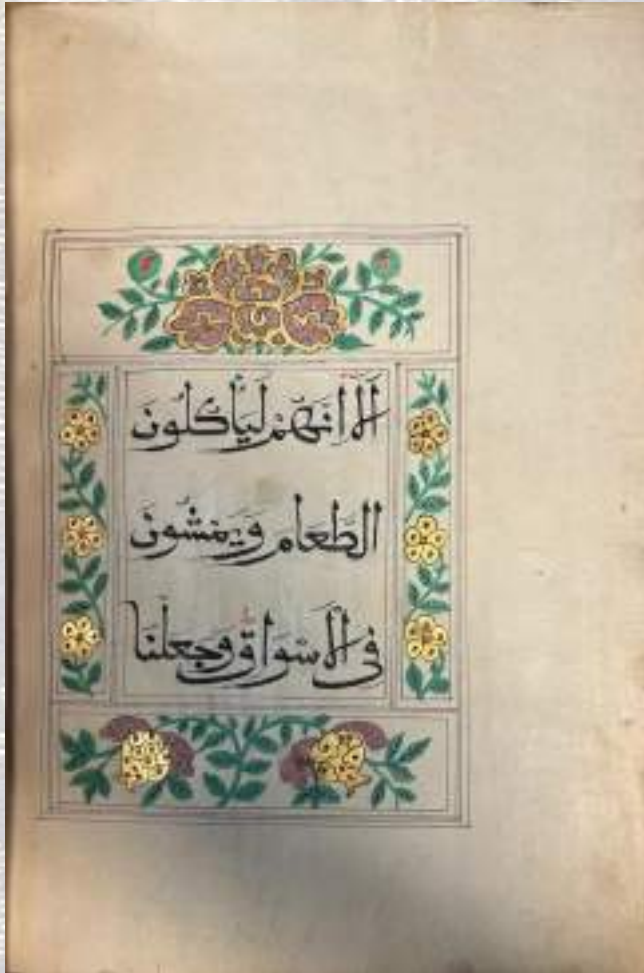 اَلَّا اَنَّهُمْ لَيَأْكُلُونَ
الطَّعَامَ وَيَمْشُونَ
فِى الْاَسْوَاقِ وَجَعَلْنَا